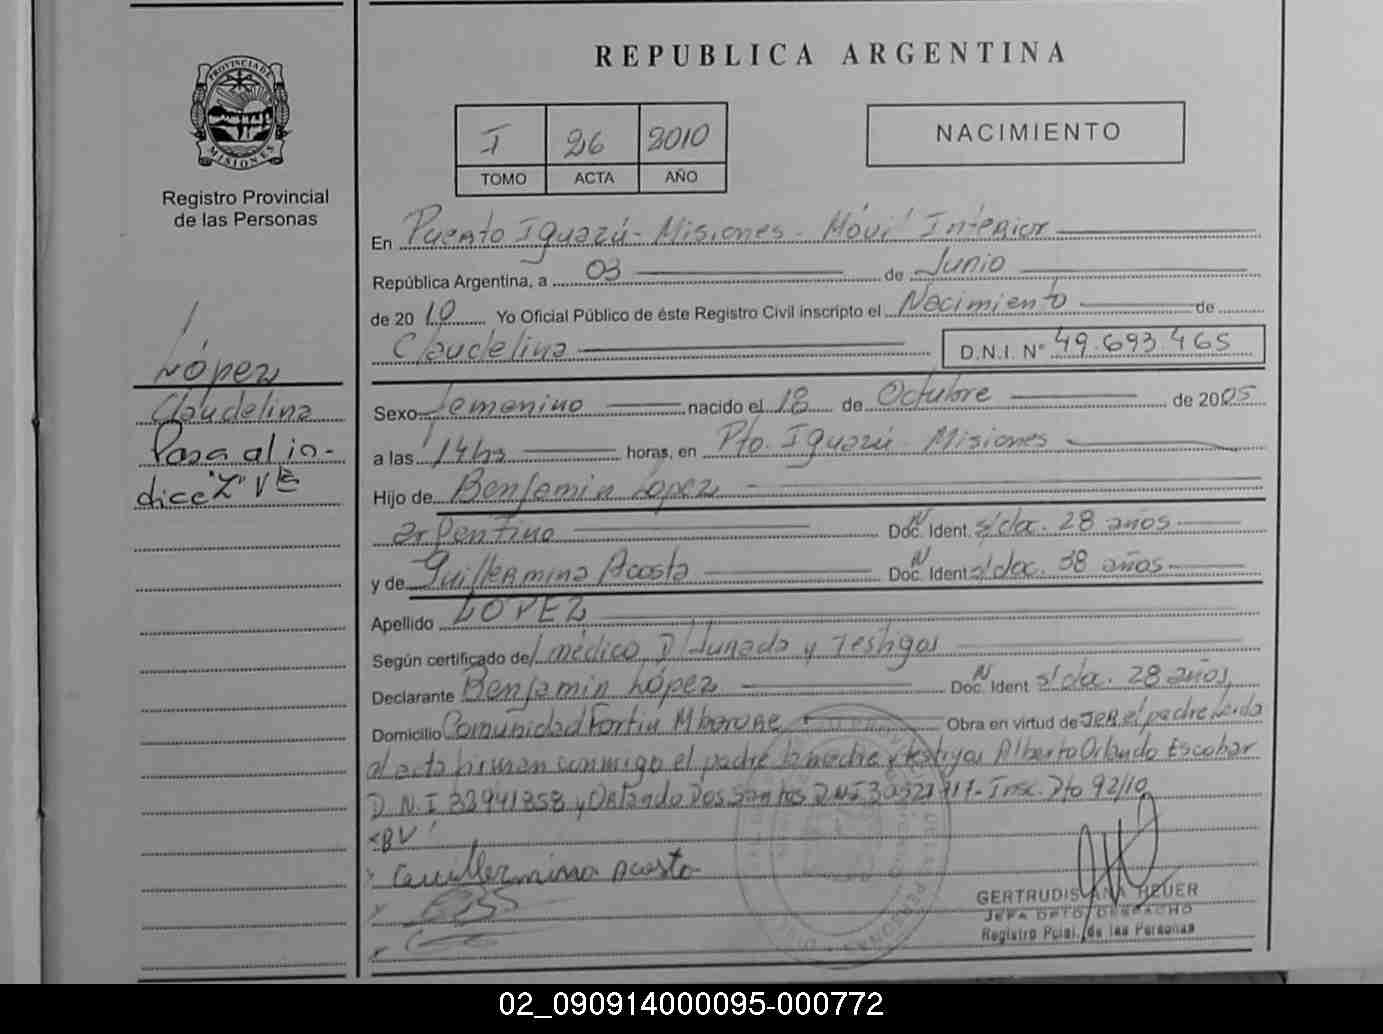 REPUBLICA ARGENTINA
PROVINCIA DE
MISIONES
Registro Provincial
de las Personas
I 26 2010
TOMO ACTA AÑO
NACIMIENTO
En Puerto Iguazú - Misiones - Móvil Interior
República Argentina, a 03 de Junio
de 2010 Yo Oficial Público de éste Registro Civil inscripto el Nacimiento de
Claudelina D.N.I. Nº 49.693.465
López
Claudelina
Pasa al ín-
dice "L" Vle
Sexo femenino nacido el 18 de Octubre de 2005
a las 14hs horas, en Pto. Iguazú - Misiones
Hijo de Benjamin López
argentino Doc. Ident. s/doc. 28 años
y de Guillermina Acosta Doc. Ident s/doc. 38 años
Apellido LOPEZ
Según certificado de/ médico D/Jurada y Testigos
Declarante Benjamin López Doc. Ident s/doc. 28 años
Domicilio Comunidad Fortin Mborore Obra en virtud de ser el padre Leida
el acta firman conmigo el padre la madre y testigos Alberto Orlando Escobar
D.N.I 32941358 y Orlando Dos Santos DNI - Insc. Dto 92/10
Guillermina Acosta
GERTRUDIS ANA HEUER
JEFA DPTO. DESPACHO
Registro Pcial. de las Personas
02_090914000095-000772